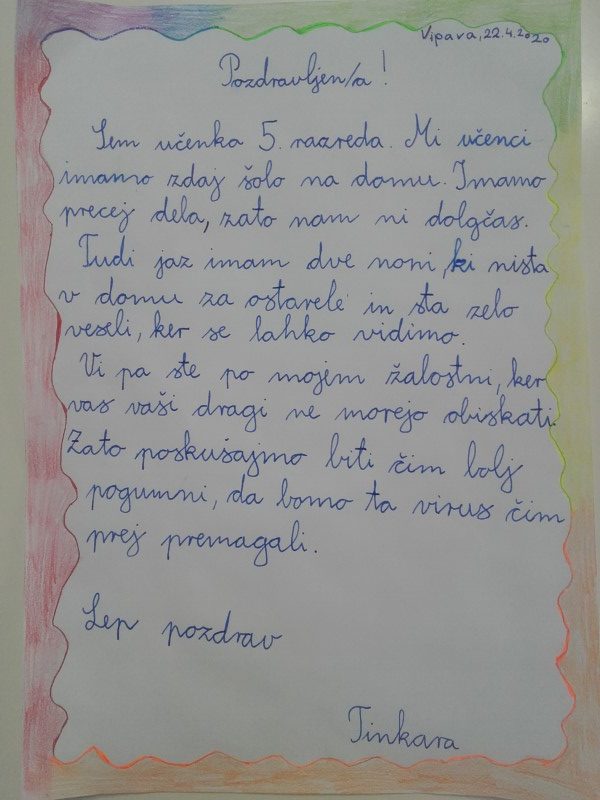 Vipava, 22.4.2020
Pozdravljen/a!
Sem učenka 5. razreda. Mi učenci
imamo zdaj šolo na domu. Imamo
precej dela, zato nam ni dolgčas.
Tudi jaz imam dve noni, ki nista
v domu za ostarele in sta zelo
veseli, ker se lahko vidimo.
Vi pa ste po mojem žalostni, ker
vas vaši dragi ne morejo obiskati.
Zato poskušajmo biti čim bolj
pogumni, da bomo ta virus čim
prej premagali.
Lep pozdrav
Tinkara